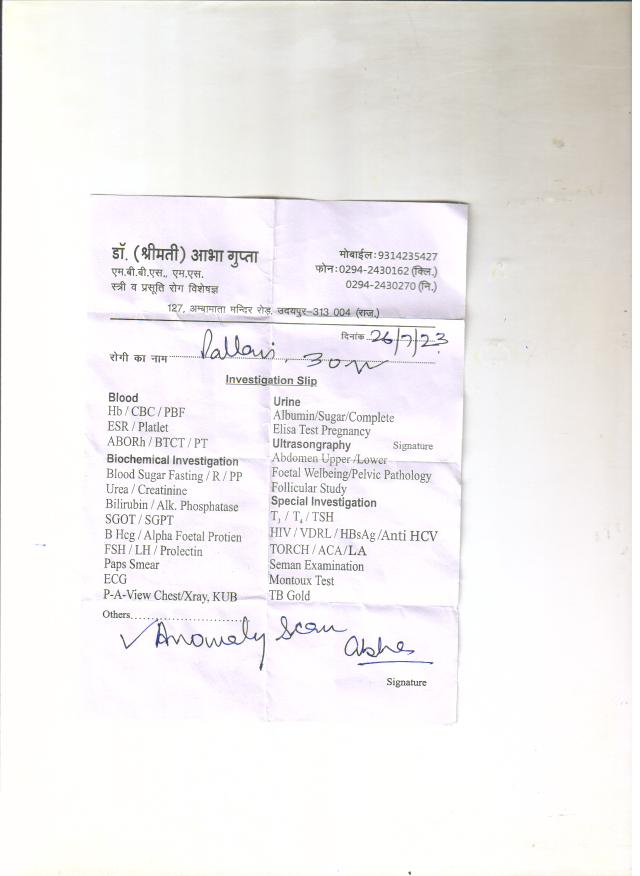 डॉ. (श्रीमती) आभा गुप्ता
एम.बी.बी.एस., एम.एस.
स्त्री व प्रसूति रोग विशेषज्ञ
मोबाईल: 9314235427
फोन: 0294-2430162 (क्लि.)
0294-2430270 (नि.)
127, अम्बामाता मन्दिर रोड़, उदयपुर-313 004 (राज.)
दिनांक 26/7/23
रोगी का नाम Pallavi, 30
Investigation Slip
Blood
Hb / CBC / PBF
ESR / Platlet
ABORh / BTCT / PT
Biochemical Investigation
Blood Sugar Fasting / R / PP
Urea / Creatinine
Bilirubin / Alk. Phosphatase
SGOT / SGPT
B Hcg / Alpha Foetal Protien
FSH / LH / Prolectin
Paps Smear
ECG
P-A-View Chest/Xray, KUB
Urine
Albumin/Sugar/Complete
Elisa Test Pregnancy
Ultrasongraphy Signature
Abdomen Upper /Lower
Foetal Welbeing/Pelvic Pathology
Follicular Study
Special Investigation
T3 / T4 / TSH
HIV / VDRL / HBsAg /Anti HCV
TORCH / ACA/LA
Seman Examination
Montoux Test
TB Gold
Others..............................
✓ Anomaly Scan
Abha
Signature